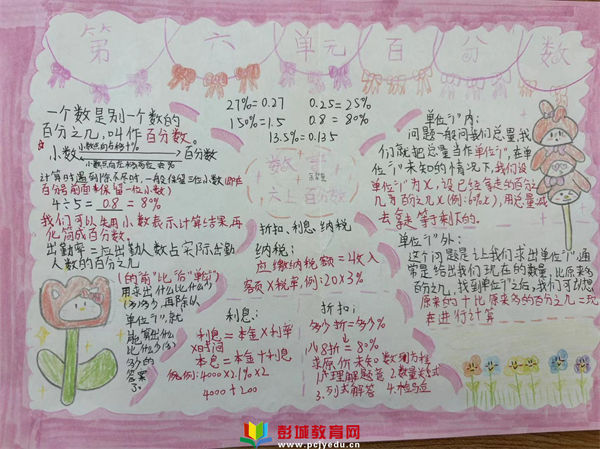 第六单元百分数
一个数是别一个数的
百分之几,叫作百分数。
小数点向右移+%
小数 百分数
小数点向左移两位,去%
计算时遇到除不尽时,一般保留三位小数(即在
百分号前面保留一位小数)
4÷5=0.8=80%
我们可以先用小数表示计算结果,再
化简成百分数。
出勤率=应出勤人数占实际出勤
人数的百分之几
27%=0.27 0.25=25%
150%=1.5 0.8=80%
13.5%=0.135
数学
六上百分数
折扣、利息、纳税
纳税:
应缴纳税额=收入
额×税率,例:20×3%
单位"1"内:
问题一般问我们总量,我
们就把总量当作单位"1",在单
位"1"未知的情况下,我们设
单位"1"为x,设已经拿走的百分之
几为百分几x(例:60%x),用总量减
去拿走等于剩下的。
单位"1"外:
这个问题是让我们求出单位"1",通
常是给出我们现在的数量,比原来多
百分之几,找到单位"1"之后,我们可以想
原来的+比原来多的百分之几=现
在进行计算
"的"前"比"后"单位1"
用来求什么比什么
多多少,再除以
单位"1",就
能算出什么
比什么多
多少的
答案
了。
利息:
利息=本金×利率
×时间
本息=本金+利息
例:4000×2.1%×2
4000+200
折扣:
多少折=多少%
八折=80%
求原价未知数列方程
1.理解题意 2.数量关系式
3.列式解答 4.检验
彭城教育网
www.pcjyedu.cn